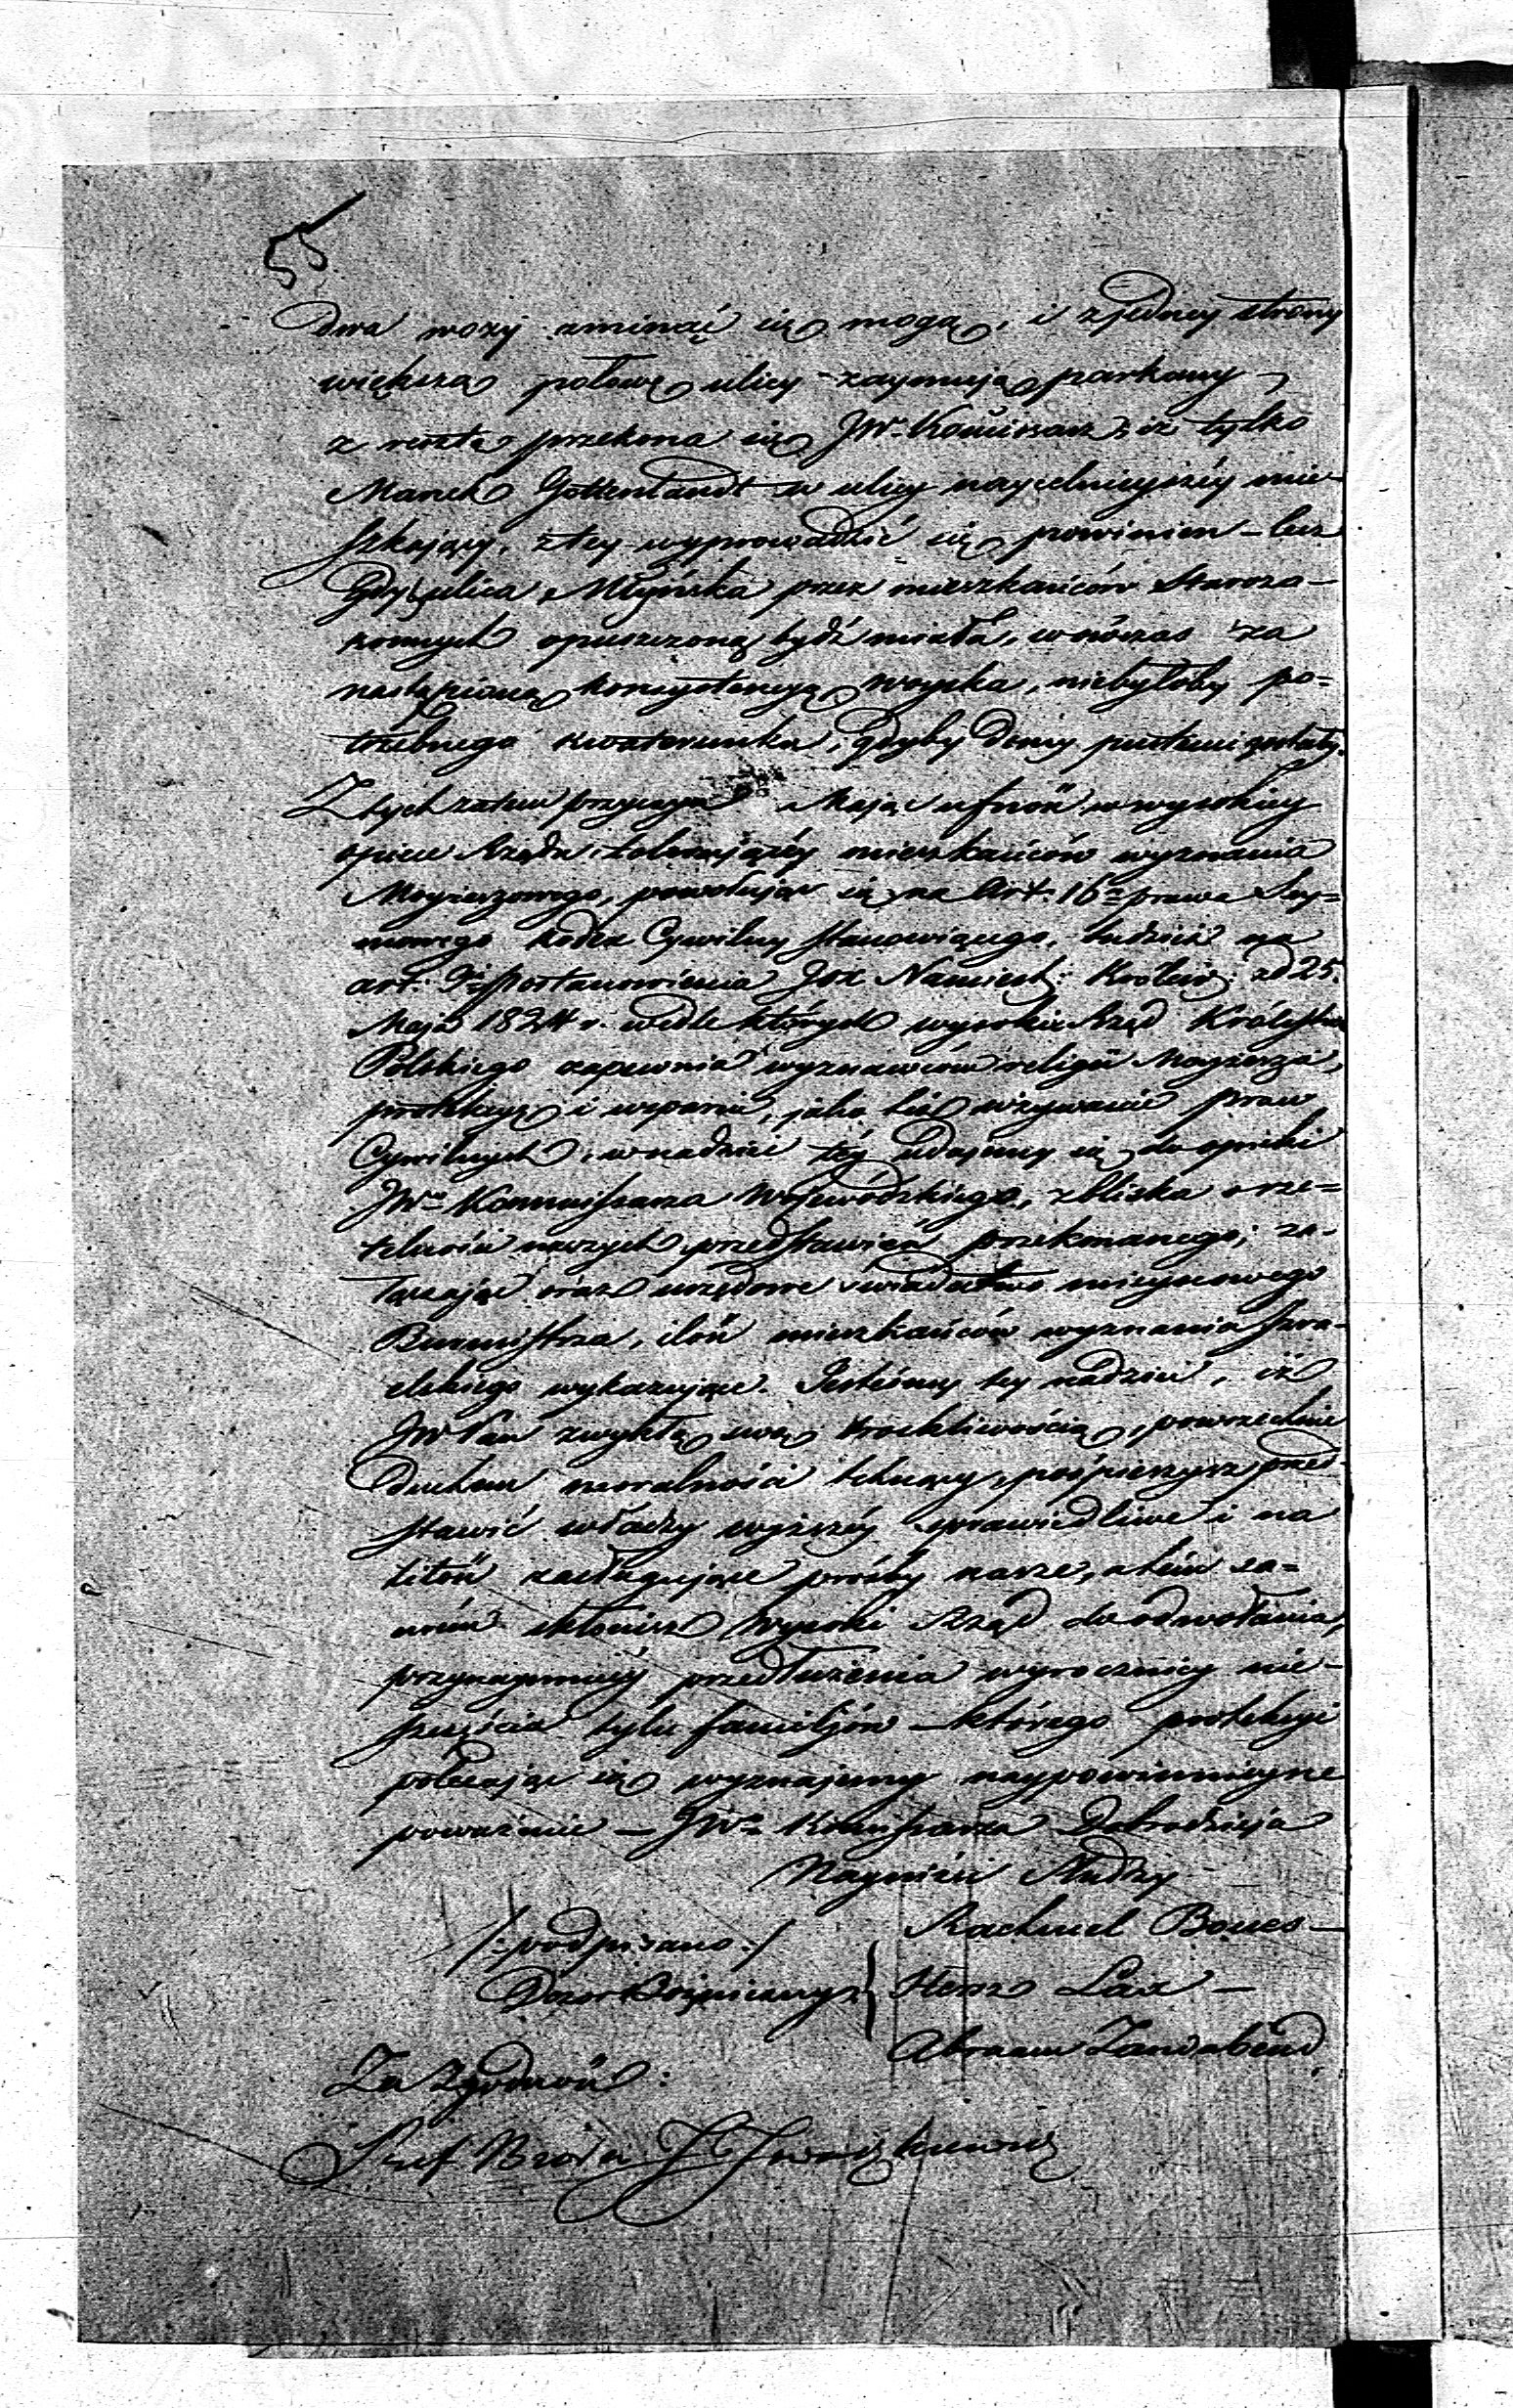 dwa wozy zminąć się mogą, i z jedney strony
większą połowę ulicy zaymują parkany –
z resztą przekona się JW. Komissarz, iż tylko
Marek Gottenlandt w ulicy naycelnieyszéy mie-
szkający, z tey wyprowadzić się powinien – lecz
Gdy ulica Młyńska przez mieszkańców Staroza-
konnych opuszczoną bydź miała, wówczas za
nastąpioną konsystencyą woyska, niebyłoby po=
trzebnego kwaterunku, gdyby domy pustemi zostały.
Z tych zatem przyczyn Mając ufność w wysokiey
opiece Rządu tolerującéy mieszkańców wyznania
Moyżeszowego, powołując się na Art. 16 prawa Sey=
mowego kodex Cywilny stanowiącego, tudzież na
art. postanowienia Jox Namiest: Królew: z d 25.
Maja 1824 r. wedle których wysoki Rząd Królestwa
Polskiego zapewnia wyznawcom religii Moyżesza,
protekcyę i wsparcie, jako też używanie praw
Cywilnych, w nadziei téy udajemy się do opieki
JWo Kommissarza Wojewódzkiego, z bliska o rze=
telności naszych przedstawień przekonanego; za-
łączając oraz urzędowe świadectwo mieyscowego
Burmistrza, ilość mieszkańców wyznania Izra-
elskiego wykazujące. Jesteśmy tey nadziei, iż
JW Pan zwykłą swą troskliwością, powszechnie
duchem moralności tchnący, pośpieszysz przed-
stawić władzy wyższéy sprawiedliwe i na
litość zasługujące prośby nasze, a tém sa=
mém skłonisz Wysoki Rząd do odwołania,
przynaymniéy przedłużenia wyrocznicy nie-
szczęścia tylu familjów – którego protekcyi
polecając się wyznajemy naypowinnieysze
poważanie – JWo Komissarza Dobrodzieja
Nayniżsi Słudzy
/:podpisano:/ Rachmel Bones –
Dozor Bożniczny } Hersz Lax –
Abraam Landabend
Za Zgodność:
Szef Biora J Iwaszkiewicz